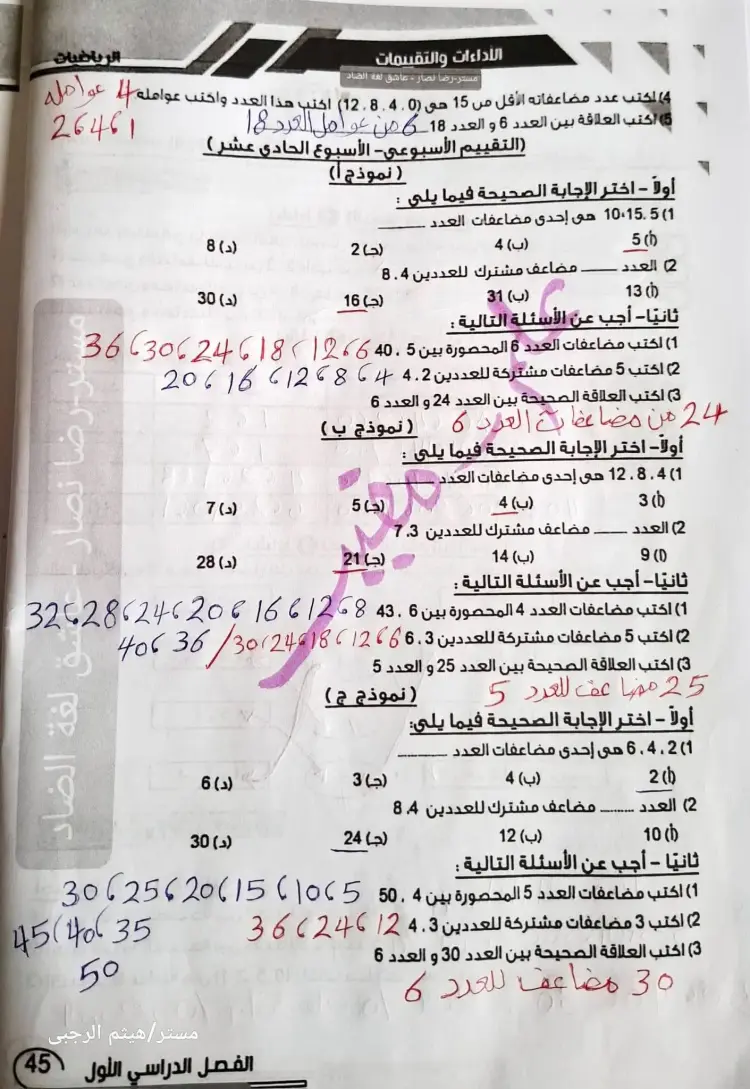 الرياضيات
الأداءات والتقييمات
مستر-رضا نصار - عاشق لغة الضاد
4) اكتب عدد مضاعفاته الأقل من 15 هي (0 ، 4 ، 8 ، 12) اكتب هذا العدد واكتب عوامله 4 عوامله
1 ، 4 ، 2
5) اكتب العلاقة بين العدد 6 و العدد 18 6 من عوامل العدد 18
(التقييم الأسبوعي - الأسبوع الحادي عشر)
(نموذج أ)
أولاً - اختر الإجابة الصحيحة فيما يلي :
1) 5 ، 15 ، 10 هي إحدى مضاعفات العدد ______
(أ) 5 (ب) 4 (جـ) 2 (د) 8
2) العدد ____ مضاعف مشترك للعددين 4 ، 8
(أ) 13 (ب) 31 (جـ) 16 (د) 30
ثانيًا - أجب عن الأسئلة التالية :
1) اكتب مضاعفات العدد 6 المحصورة بين 5 ، 40 6 ، 12 ، 18 ، 24 ، 30 ، 36
2) اكتب 5 مضاعفات مشتركة للعددين 2 ، 4 4 ، 8 ، 12 ، 16 ، 20
3) اكتب العلاقة الصحيحة بين العدد 24 و العدد 6
24 من مضاعفات العدد 6
(نموذج ب)
أولاً - اختر الإجابة الصحيحة فيما يلي :
1) 4 ، 8 ، 12 هي إحدى مضاعفات العدد ______
(أ) 3 (ب) 4 (جـ) 5 (د) 7
2) العدد ____ مضاعف مشترك للعددين 3 ، 7
(أ) 9 (ب) 14 (جـ) 21 (د) 28
ثانيًا - أجب عن الأسئلة التالية :
1) اكتب مضاعفات العدد 4 المحصورة بين 6 ، 43 8 ، 12 ، 16 ، 20 ، 24 ، 28 ، 32
2) اكتب 5 مضاعفات مشتركة للعددين 3 ، 6 6 ، 12 ، 18 ، 24 ، 30 / 36 ، 40
3) اكتب العلاقة الصحيحة بين العدد 25 و العدد 5
25 مضاعف للعدد 5
(نموذج ج)
أولاً - اختر الإجابة الصحيحة فيما يلي:
1) 2 ، 4 ، 6 هي إحدى مضاعفات العدد ______
(أ) 2 (ب) 4 (جـ) 3 (د) 6
2) العدد ........ مضاعف مشترك للعددين 4 ، 8
(أ) 10 (ب) 12 (جـ) 24 (د) 30
ثانيًا - أجب عن الأسئلة التالية :
1) اكتب مضاعفات العدد 5 المحصورة بين 4 ، 50 5 ، 10 ، 15 ، 20 ، 25 ، 30
2) اكتب 3 مضاعفات مشتركة للعددين 3 ، 4 12 ، 24 ، 36
35 ، 40 ، 45
50
3) اكتب العلاقة الصحيحة بين العدد 30 و العدد 6
30 مضاعف للعدد 6
مستر-رضا نصار - عاشق لغة الضاد
مستر/هيثم الرجبى
الفصل الدراسي الأول
45